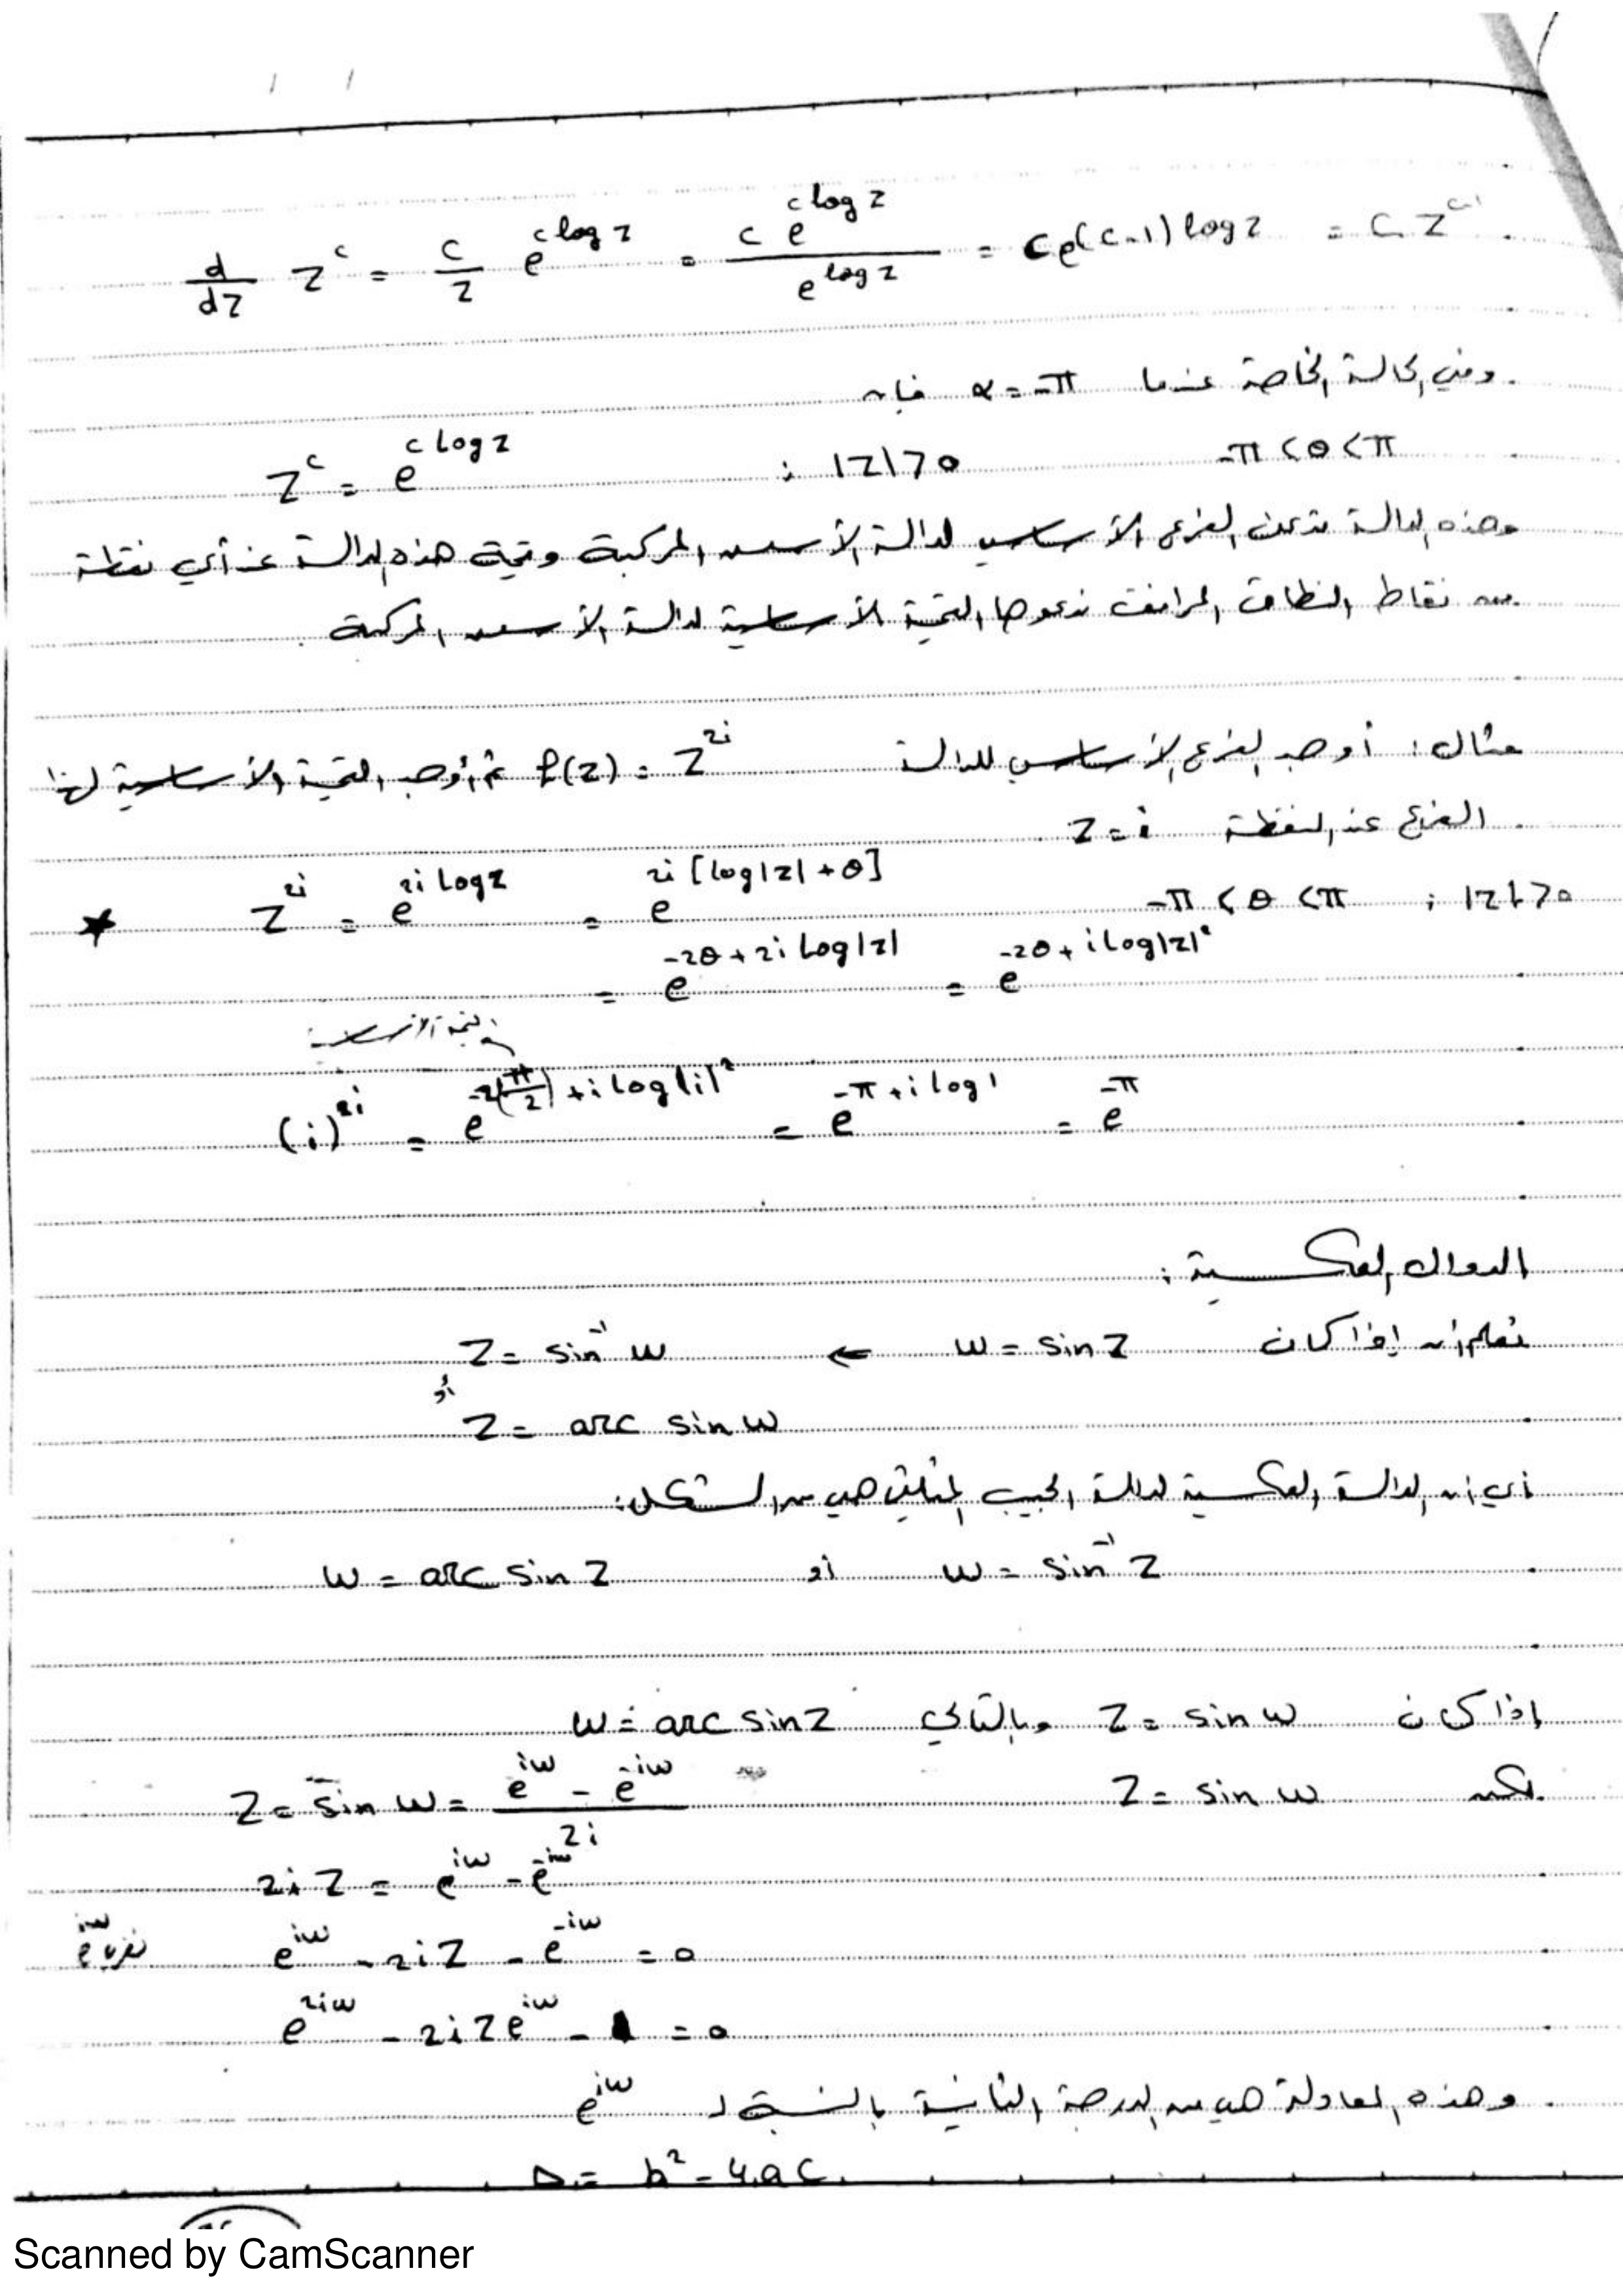 d/dz z^c = c/z e^{c log z} = c e^{c log z} / e^{log z} = c e^{(c-1) log z} = c z^{c-1}
وفي الحالة الخاصة عندما α = -π فإن
z^c = e^{c Log z} ; |z| > 0 -π < θ < π
وهذه الدالة تدعى الفرع الأساسي لدالة الأسس المركبة وقيمة هذه الدالة عند أي نقطة
من نقاط النطاق المرافق ندعوها القيمة الأساسية لدالة الأسس المركبة.
مثال: أوجد الفرع الأساسي للدالة f(z) = z^{2i} ثم أوجد القيمة الأساسية لهذا
الفرع عند النقطة z = i
★ z^{2i} = e^{2i Log z} = e^{2i [log|z| + θ]} -π < θ < π ; |z| > 0
= e^{-2θ + 2i Log|z|} = e^{-2θ + i Log|z|²}
القيمة الأساسية
(i)^{2i} = e^{-2(π/2) + i Log|i|²} = e^{-π + i log 1} = e^{-π}
الدوال العكسية :
نعلم أنه إذا كان w = sin z ← z = sin⁻¹ w
أو
z = arc sin w
أي أن الدالة العكسية لدالة الجيب المثلثي هي من الشكل:
w = sin⁻¹ z أو w = arc sin z
إذا كان z = sin w وبالتالي w = arc sin z
لكن z = sin w z = sin w = (e^{iw} - e^{-iw}) / 2i
2i z = e^{iw} - e^{-iw}
e^{iw} - 2i z - e^{-iw} = 0 نضرب e^{iw}
e^{2iw} - 2i z e^{iw} - 1 = 0
وهذه المعادلة هي من الدرجة الثانية بالنسبة لـ e^{iw}
Δ = b² - 4ac
Scanned by CamScanner